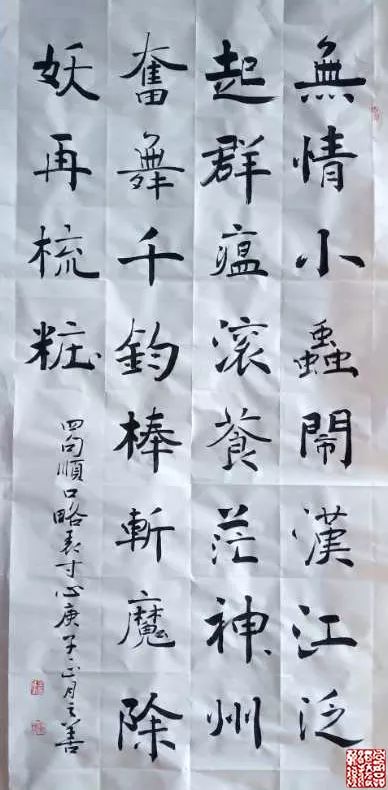 無情小蟲鬧漢江泛
起群瘟滾餐茫神州
奮舞千鈞棒斬魔除
妖再梳粧
四句順口略表寸心庚子正月之善